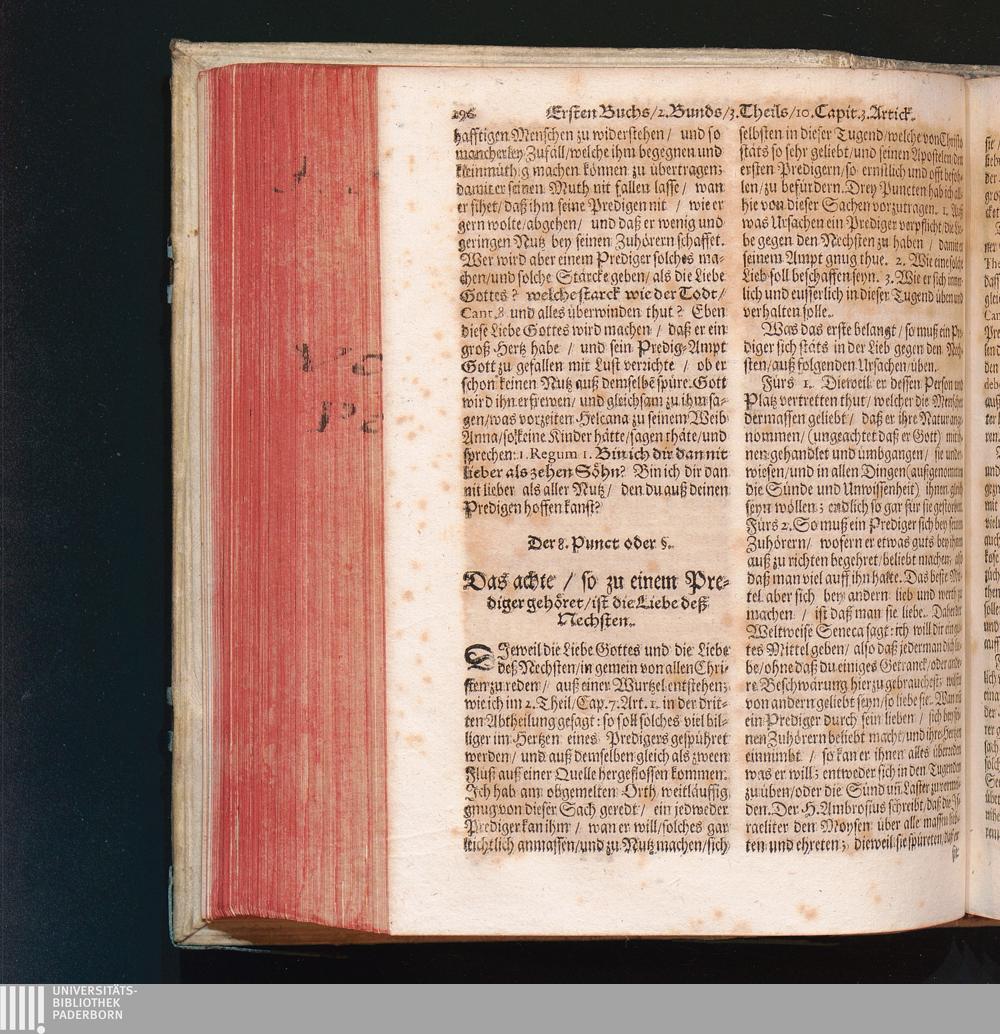 196 Ersten Buchs/2.Bunds/3.Theils/10.Capit.3.Artick.
hafftigen Menschen zu widerstehen/ und so
mancherley Zufall/welche ihm begegnen und
kleinmüthig machen können zu übertragen;
damit er seinen Muth nit fallen lasse/ wan
er sihet/daß ihm seine Predigen nit / wie er
gern wolte/abgehen/ und daß er wenig und
geringen Nutz bey seinen Zuhörern schaffet.
Wer wird aber einem Prediger solches ma-
chen/und solche Stärcke geben/als die Liebe
Gottes? welche starck wie der Todt/
Cant.8 und alles überwinden thut? Eben
diese Liebe Gottes wird machen / daß er ein
groß Hertz habe / und sein Predig-Ampt
Gott zu gefallen mit Lust verrichte / ob er
schon keinen Nutz auß demselbē spüre. Gott
wird ihn erfrewen/ und gleichsam zu ihm sa-
gen/was vorzeiten Helcana zu seinem Weib
Anna/so keine Kinder hätte/sagen thäte/und
sprechen: 1. Regum 1. Bin ich dir dan nit
lieber als zehen Söhn? Bin ich dir dan
nit lieber als aller Nutz/ den du auß deinen
Predigen hoffen kanst?
Der 8. Punct oder §.
Das achte / so zu einem Pre-
diger gehöret/ist die Liebe deß
Nechsten.
DJeweil die Liebe Gottes und die Liebe
deß Nechsten/in gemein von allen Chri-
sten zu reden/ auß einer Wurtzel entstehen;
wie ich im 2. Theil/Cap.7.Art.1. in der drit-
ten Abtheilung gesagt: so soll solches viel bil-
liger im Hertzen eines Predigers gespühret
werden/ und auß demselben gleich als zween
Flüß auß einer Quelle hergeflossen kommen.
Ich hab am obgemelten Orth weitläuffig
gnug von dieser Sach geredt/ ein jedweder
Prediger kan ihm / wan er will/solches gar
leichtlich anmassen/und zu Nutz machen/sich
selbsten in dieser Tugend/welche von Christo
stäts so sehr geliebt/und seinen Apostelen/den
ersten Predigern/so ernstlich und offt befoh-
len/zu befürdern. Drey Puncten hab ich all-
hie von dieser Sachen vorzutragen. 1. Auß
was Ursachen ein Prediger verpflicht/die Lie-
be gegen den Nechsten zu haben / damit er
seinem Ampt gnug thue. 2. Wie eine solche
Lieb soll beschaffen seyn. 3. Wie er sich inner-
lich und eusserlich in dieser Tugend üben und
verhalten solle.
Was das erste belangt/so muß ein Pre-
diger sich stäts in der Lieb gegen den Nech-
sten/auß folgenden Ursachen/üben.
Fürs 1. Dieweil er dessen Person und
Platz vertretten thut/welcher die Menschen
dermassen geliebt/ daß er ihre Natur ange-
nommen/(ungeachtet daß er Gott) mit ih-
nen gehandlet und umbgangen/ sie unter-
wiesen/und in allen Dingen (außgenommen
die Sünde und Unwissenheit) ihnen gleich
seyn wöllen; endlich so gar für sie gestorben.
Fürs 2. So muß ein Prediger sich bey seinen
Zuhörern/ wofern er etwas guts bey ihnen
auß zu richten begehret/beliebt machen/ also
daß man viel auff ihn halte. Das beste Mit-
tel aber sich bey andern lieb und werth zu
machen / ist daß man sie liebe. Daher der
Weltweise Seneca sagt: ich will dir ein gu-
tes Mittel geben/ also daß jederman dich lie-
be/ohne daß du einiges Getranck/oder ande-
re Beschwärung hierzu gebrauchest; wilstu
von andern geliebt seyn/so liebe sie. Wan nu
ein Prediger durch sein lieben / sich bey sei-
nen Zuhörern beliebt macht/und ihre Hertzen
einnimbt / so kan er ihnen alles überreden
was er will; entweder sich in den Tugenden
zu üben/oder die Sünd uñ Laster zu vermei-
den. Der H. Ambrosius schreibt/daß die Js-
raeliter den Moysen über alle massen lieb-
ten und ehreten; dieweil sie spüreten/daß er
sie
UNIVERSITÄTS-
BIBLIOTHEK
PADERBORN